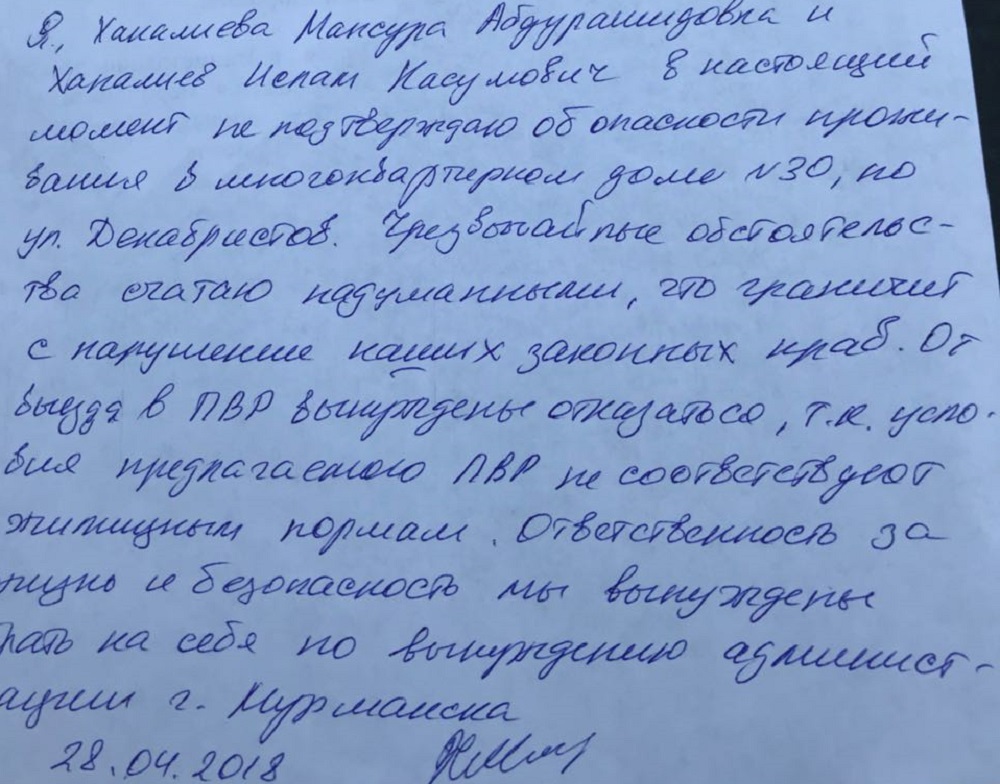 Я, Хапалиева Мансура Абдурашидовна и
Хапалиев Испам Касумович в настоящий
момент не подтверждаю об опасности прожи-
вания в многоквартирном доме №30, по
ул. Декабристов. Чрезвычайные обстоятельс-
тва считаю надуманными, что граничит
с нарушение наших законных прав. От
выезда в ПВР вынуждены отказаться, т.к. усло-
вия предлагаемого ПВР не соответствуют
жилищным нормам. Ответственность за
жизнь и безопасность мы вынуждены
брать на себя по вынуждению админист-
рации г. Мурманска
28.04.2018